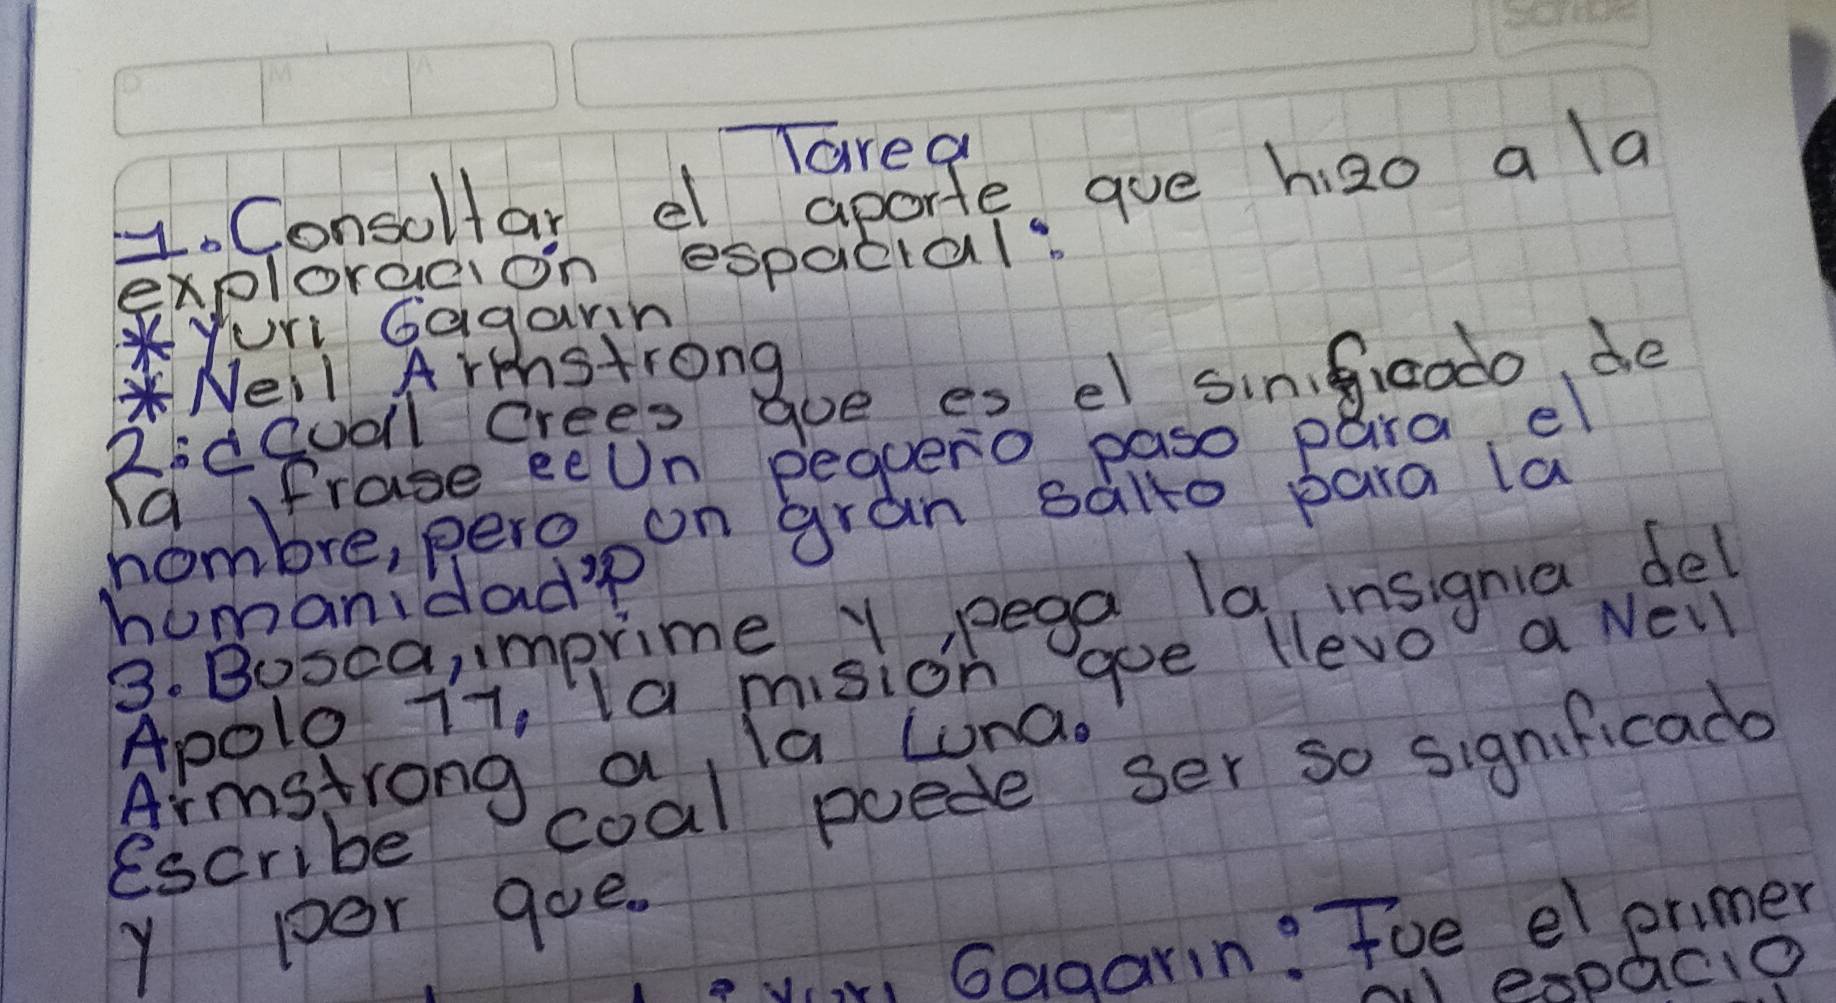 Scribe
D M A
Tarea
1. Consultar el aporte que hizo a la
exploración espacial:
* Yuri Gagarin
* Neil Armstrong
2. ¿Cuál crees que es el sinificado de
la frase "Un pequeño paso para el
hombre, pero un gran salto para la
humanidad"?
3. Busca, imprime y pega la insignia del
Apolo 11, la misión que llevo a Neil
Armstrong a la Luna.
Escribe cual puede ser su significado
y por que.
Yuri Gagarin: Fue el primer
al espacio